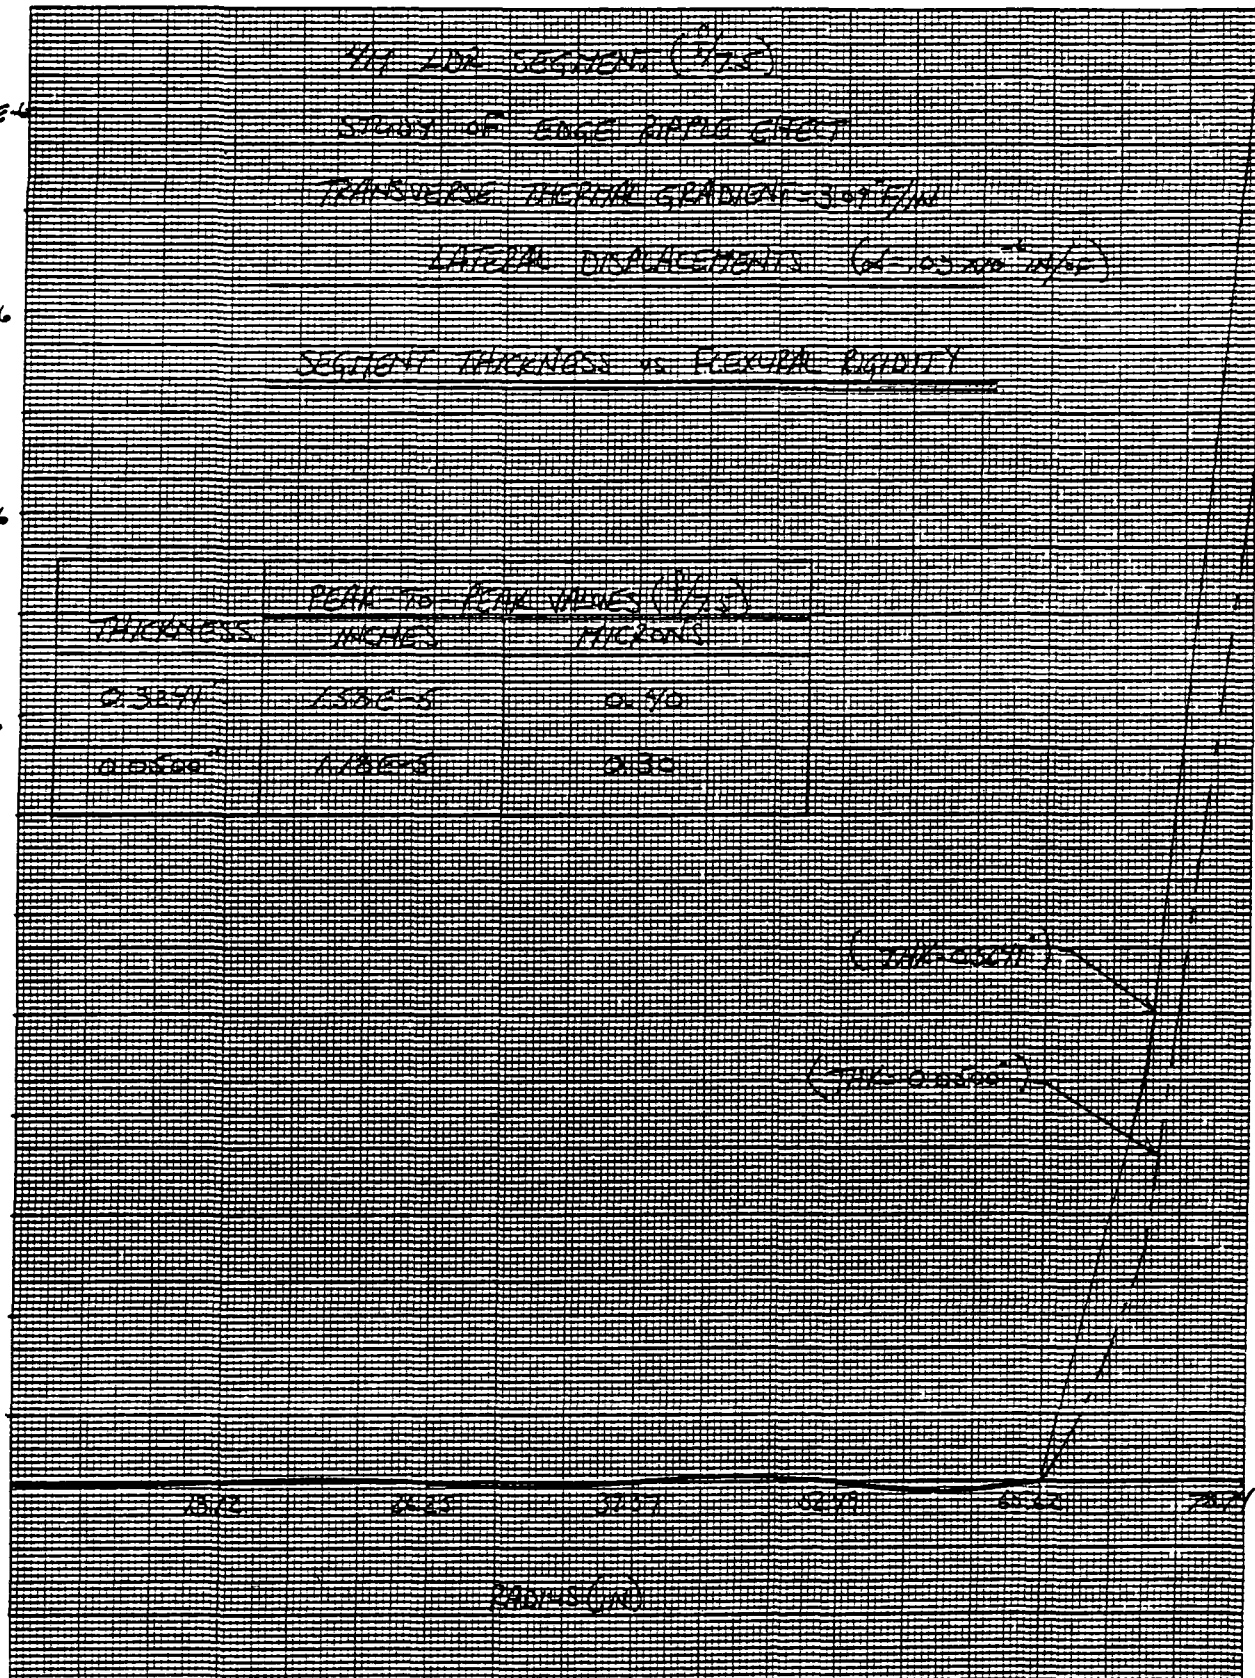 4M LDR SEGMENT (f/7.5)
STUDY OF EDGE RIPPLE EFFECT
TRANSVERSE THERMAL GRADIENT = 3.09°F/IN
LATERAL DISPLACEMENTS (α=.03x10⁻⁶ IN/°F)
SEGMENT THICKNESS vs FLEXURAL RIGIDITY
PEAK-TO-PEAK VALUES (f/7.5)
THICKNESS INCHES MICRONS
1.58E-5 0.40
0.0500" 1.18E-5 0.30
(THK=0.0500")
13.12 26.25 39.37 52.49 65.62 78.74
RADIUS (IN)